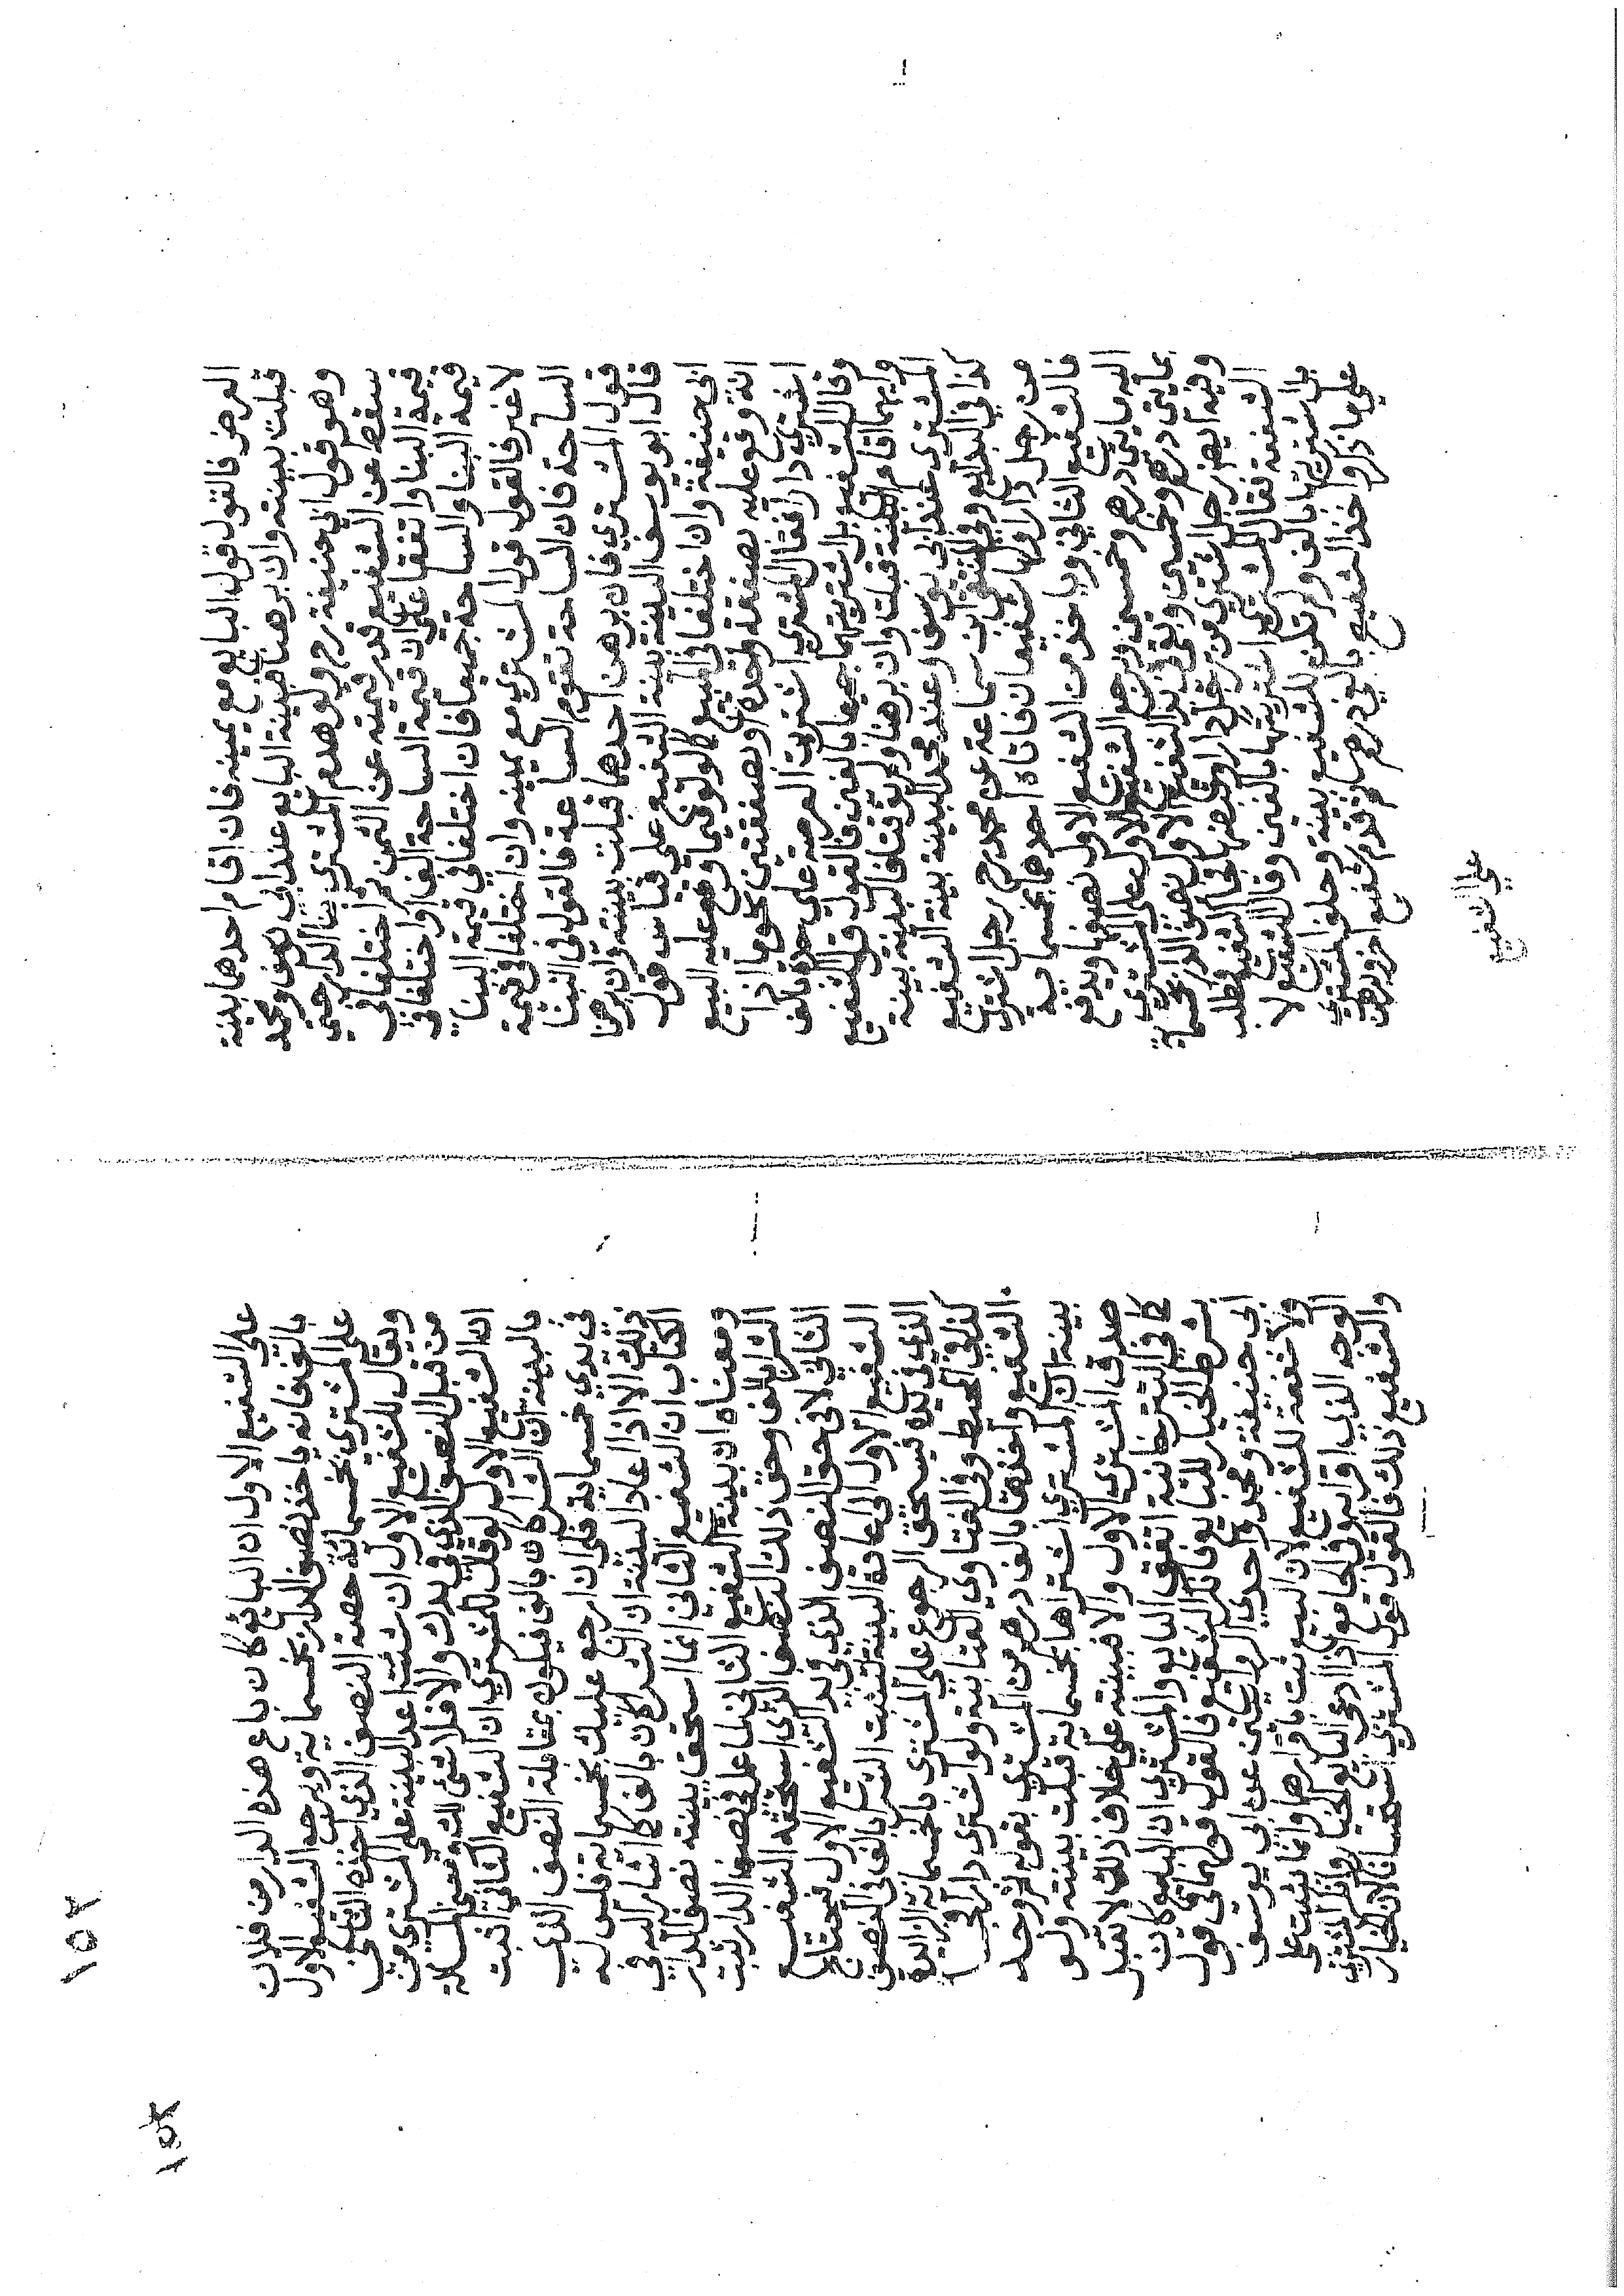 العرض فالقول قول البايع مع يمينه فان اقام احدهما بينة
قبلت بينته وان برهنا فبينة البايع عند ابى يوسف ومحمد
وهو قول ابى حنيفة رح ولو هدم المشترى بنا الدار حتى
سقط عن الشفيع قدر قيمته من الثمن ثم اختلفا في
قيمة البنا واتفقا على ان قيمة الساحة الف او اختلفا في
قيمة البنا والساحة جميعا فان اختلفا في قيمة البنا
لا غير فالقول قول المشترى مع يمينه وان اختلفا في قيمة
الساحة فان الساحة تقوم الساعة فالقول في البنا
قول المشترى فان برهن احدهما قبلت بينته وان برهنا
قال ابو يوسف البينة بينة الشفيع على قياس قول
ابى حنيفة وان اختلفا في المبيع كالو توقيا وقع عليه البيع
انه وقع عليه بصفقة واحدة او بصفقتين نحو ما اذا
اشترى دارا فقال المشترى اشتريت العرصة على حدة بالف
وقال الشفيع بل اشتريتهما جميعا بالفين فالقول قول الشفيع
وايهما اقام البينة قبلت وان برهنا ولم يوقتا فالبينة بينة
المشترى عند ابى يوسف وعند محمد البينة بينة الشفيع
كذا في البدايع وفي المنتقى ابن سماعة عن محمد رح رجل اشترى
من رجل دارا ولها شفيعان فاتاه احدهما بخسماية
فالشفيع الثاني ياخذ من الشفيع الاول نصفها ويدفع
اليه مايتي درهم وخمسين ويرجع الشفيع الاول على المشترى
بمايتي درهم وخمسين وبقى في يد الشفيع الاول نصف الدار بخسماية
وفيه ايضا رجل اشترى من رجل دارا وقبضها فجا الشفيع يطلب
الشفعة فقال المشترى اشتريتها بالفين وقال الشفيع لا
بل اشتريتها بالف ولم تكن للشفيع بينة وحلف المشترى
على ما ذكر واخذ الشفيع بالفى درهم ثم قدم شفيع اخر وبرهن
على الشفيع
على الشفيع الاول ان البائع كان باع هذه الدار من فلان
بالف فانه ياخذ نصف الدار بخسماية ويرجع الشفيع الاول
على المشترى بخسمائة حصة النصف الذي اخذه الثاني
ويقال للشفيع الاول ان شئت اعد البينة على المشترى من
من قبل النصف الذي في يدك والا فلا شئ لك ومعنى المسئلة
ان الشفيع الاول لو قال للمشترى ان الشفيع الثاني اثبت
بالبينة ان الشرا كان بالف فيكون بمقابلة النصف الذي
في يدي خمسماية فلي ان ارجع عليك بخسماية فليس له
ذلك الا اذا اعاد البينة ان الشرا كان بالف كما اشار اليه في
الكتاب ان الشفيع الثاني انما استحق ببينته نصف الدار
ومعناه ان بينة الشفيع الثاني انما عمل في نصف الدار فثبت
الشرا بالف وحق ذلك النصف الذي استحقه الشفيع
الثاني لا في حق النصف الذي في يد الشفيع الاول فيحتاج
الشفيع الاول الى اعادة البينة لتثبت الشرا بالف في النصف
الذي في يده فيستحق الرجوع على المشترى بالخسماية الزائدة
كذا في المحيط وفي الفتاوي العتابية ولو اشترى دارا فجا
الشفيع واخذها بالف درهم من المشترى بقوله ثم وجد
بينة ان المشترى اشتراها بخسماية قبلت بينته ولو
صدق المشترى الاول والا فبينة على خلاف ذلك لا تقبل
كما في التترخانية اتفق البايع والمشترى ان البيع كان
بشرط الخيار للبايع فانكر الشفيع فالقول قولهما في قول
ابى حنيفة ومحمد واحدى الروايتين عن ابى يوسف
ولا شفعة للشفيع لان البيع ثبت باقرارهما وانما ثبت على
الوجه الذي اقرا به وفي الجامع اذا ادعى البايع الخيار وانكر المشترى
والشفيع ذلك فالقول قول المشترى استحسانا لان الخيار
١٥٢
١٥٢